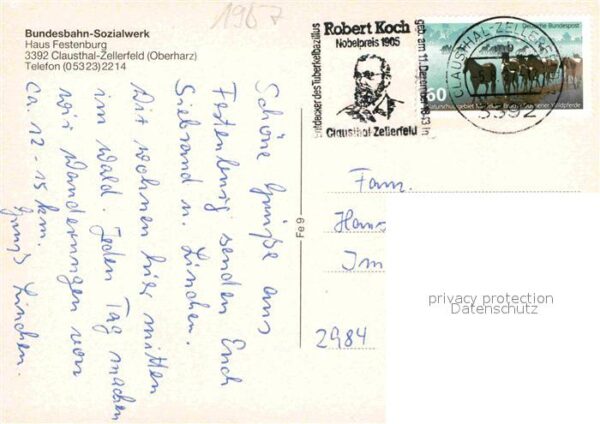 1987
Bundesbahn-Sozialwerk
Haus Festenburg
3392 Clausthal-Zellerfeld (Oberharz)
Telefon (05323) 2214
Schöne Grüße aus
Festenburg senden Euch
Siebrand u. Linchen.
Wir wohnen hier mitten
im Wald. Jeden Tag machen
wir Wanderungen von
ca. 12 - 15 km.
Gruß Linchen.
Fe 9
Entdecker des Tuberkelbazillus
Robert Koch
Nobelpreis 1905
geb. am 11. Dezember 1843 in
Clausthal-Zellerfeld
CLAUSTHAL-ZELLERFELD
3392
Deutsche Bundespost
60
Naturschutzgebiet Merfelder Bruch, Dülmener Wildpferde
Fam.
Hans
Im
2984
privacy protection
Datenschutz